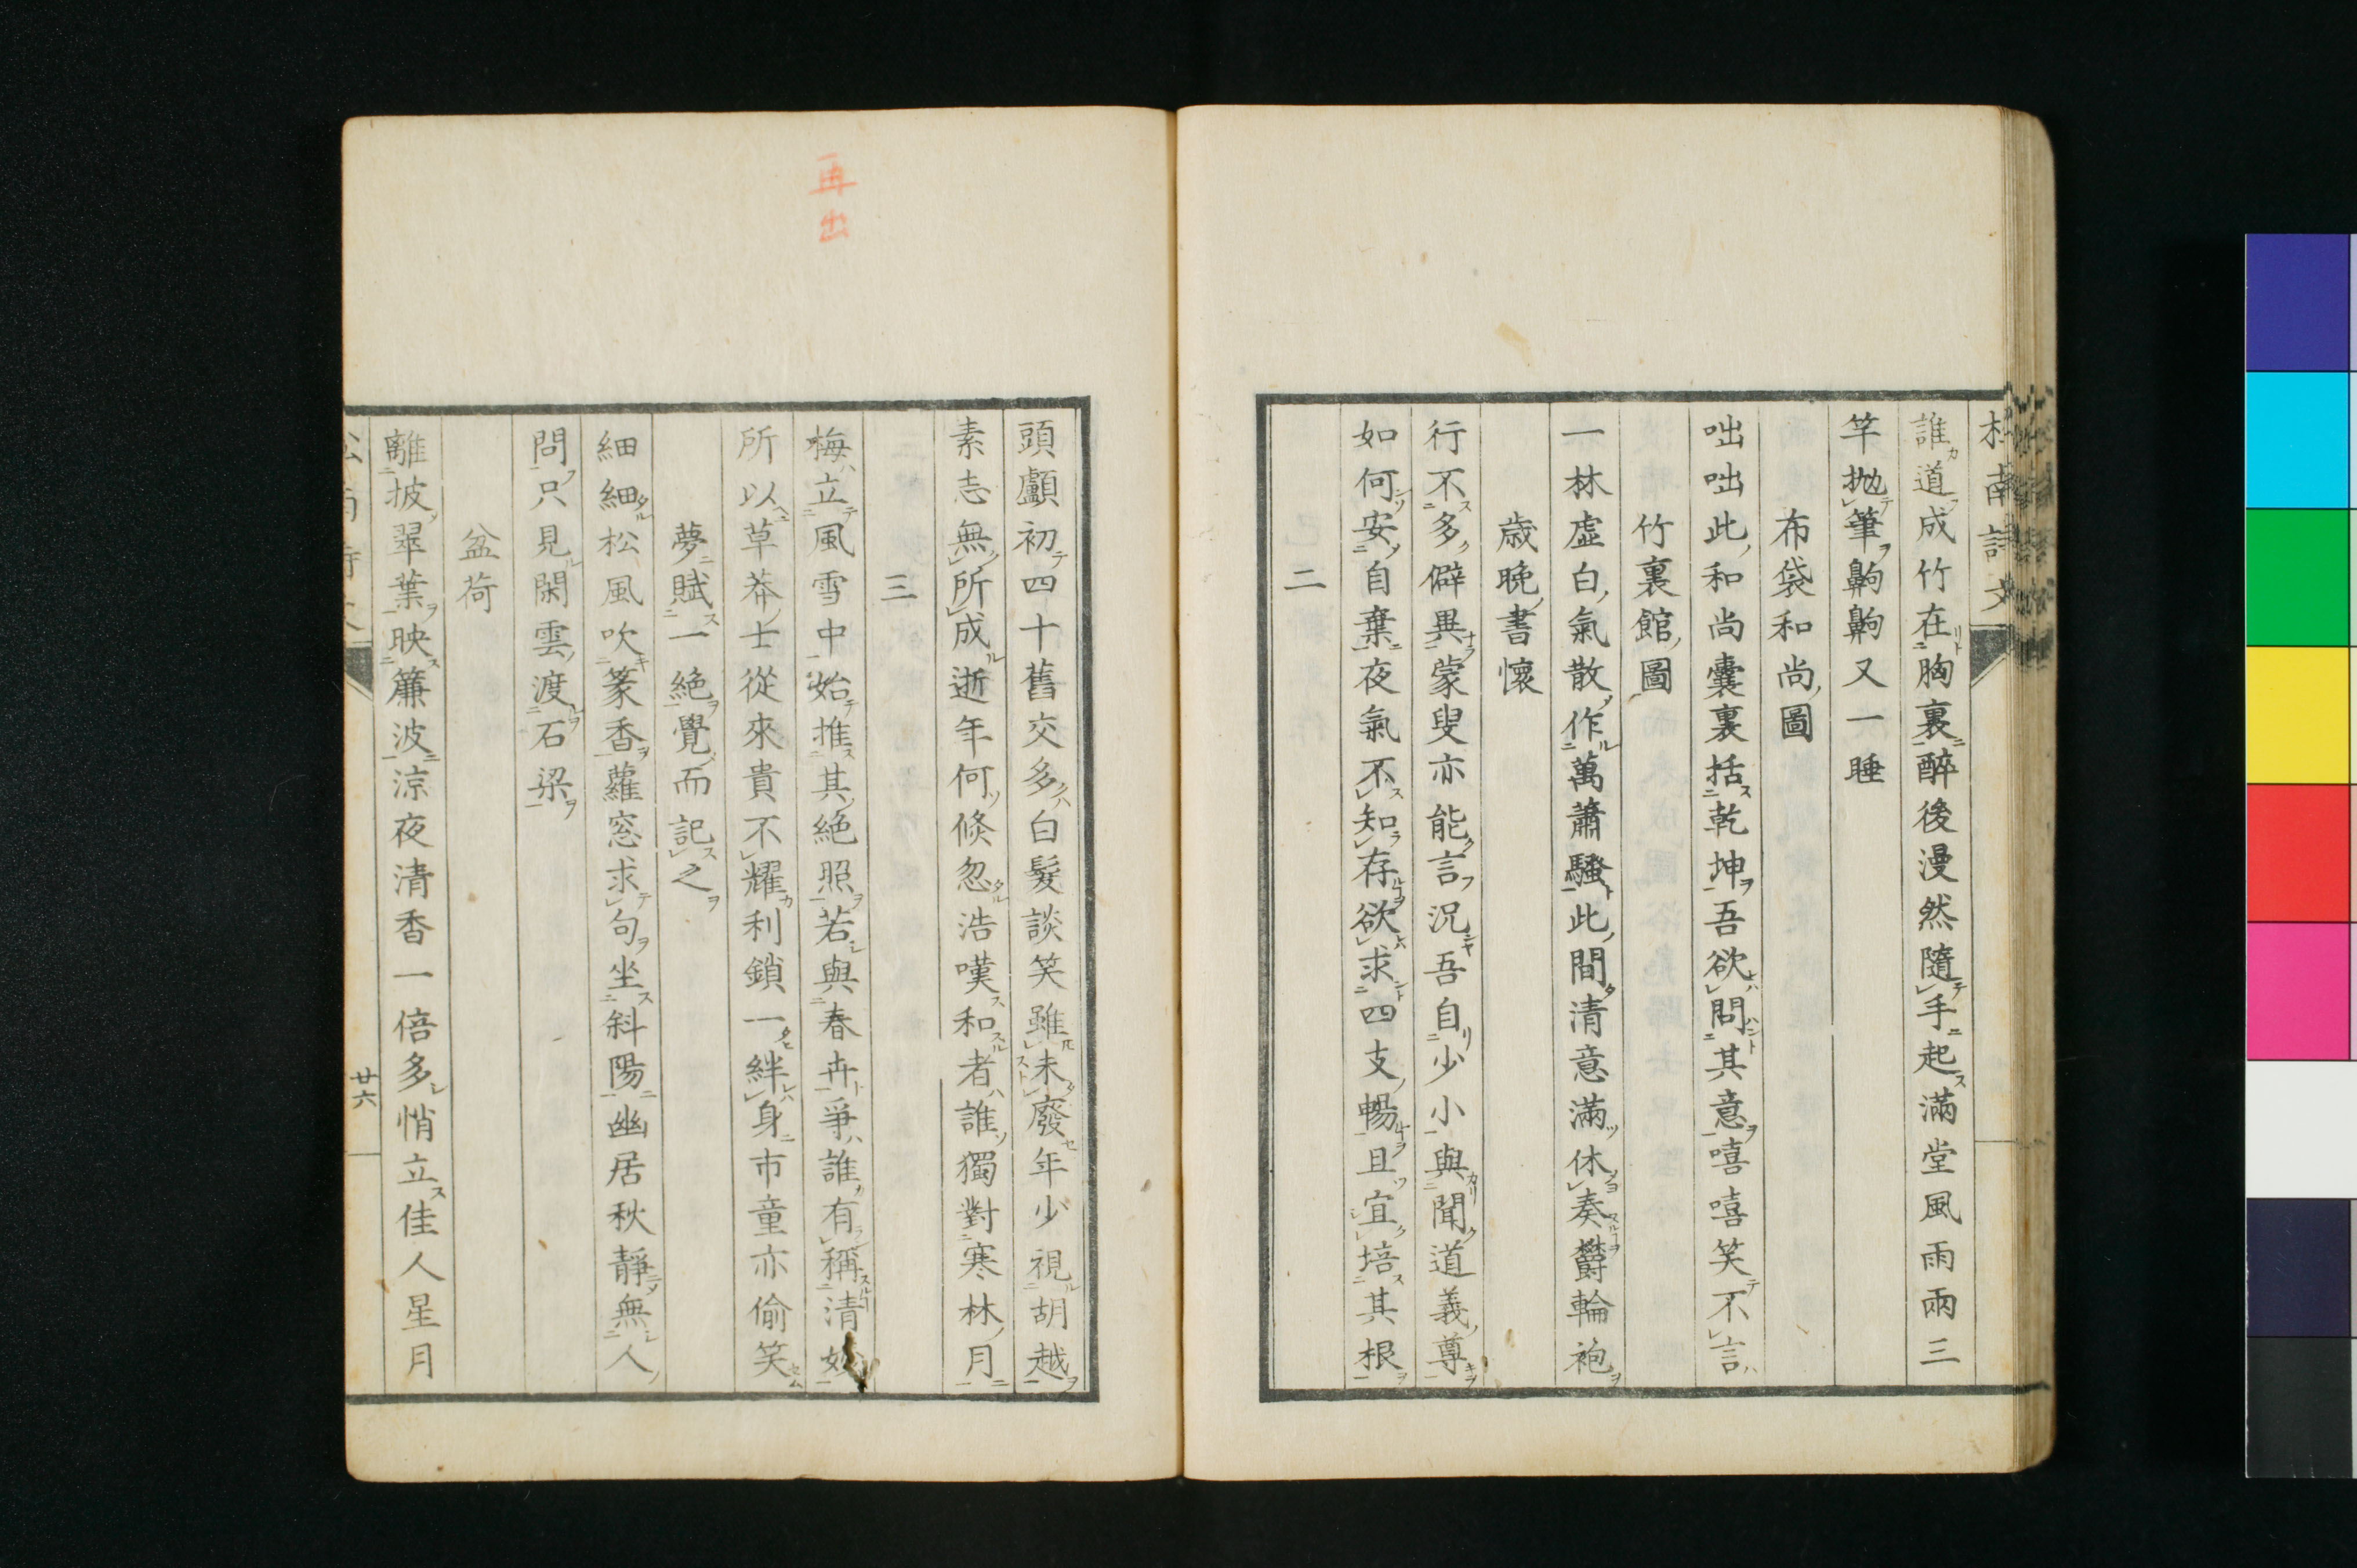 誰道成竹在胸裏醉後漫然隨手起滿堂風雨兩三
竿抛筆齁齁又一睡
布袋和尚圖
咄咄此和尚囊裏括乾坤吾欲問其意嘻嘻笑不言
竹裏館圖
一林虛白氣散作萬蕭騷此間清意滿休奏欝輪袍
歳晩書懷
行不多僻異蒙叟亦能言況吾自少小與聞道義尊
如何安自棄夜氣不知存欲求四支暢且宜培其根
二
頭顱初四十舊交多白髮談笑雖未廢年少視胡越
素志無所成逝年何倏忽浩嘆和者誰獨對寒林月
三
梅立風雪中始推其絶照若與春卉爭誰有稱清妙
所以草莽士從來貴不耀利鎖一絆身市童亦偷笑
夢賦一絶覺而記之
細細松風吹篆香蘿窓求句坐斜陽幽居秋靜無人
問只見閑雲渡石梁
盆荷
離披翠葉映簾波涼夜清香一倍多悄立佳人星月
廿六
再出